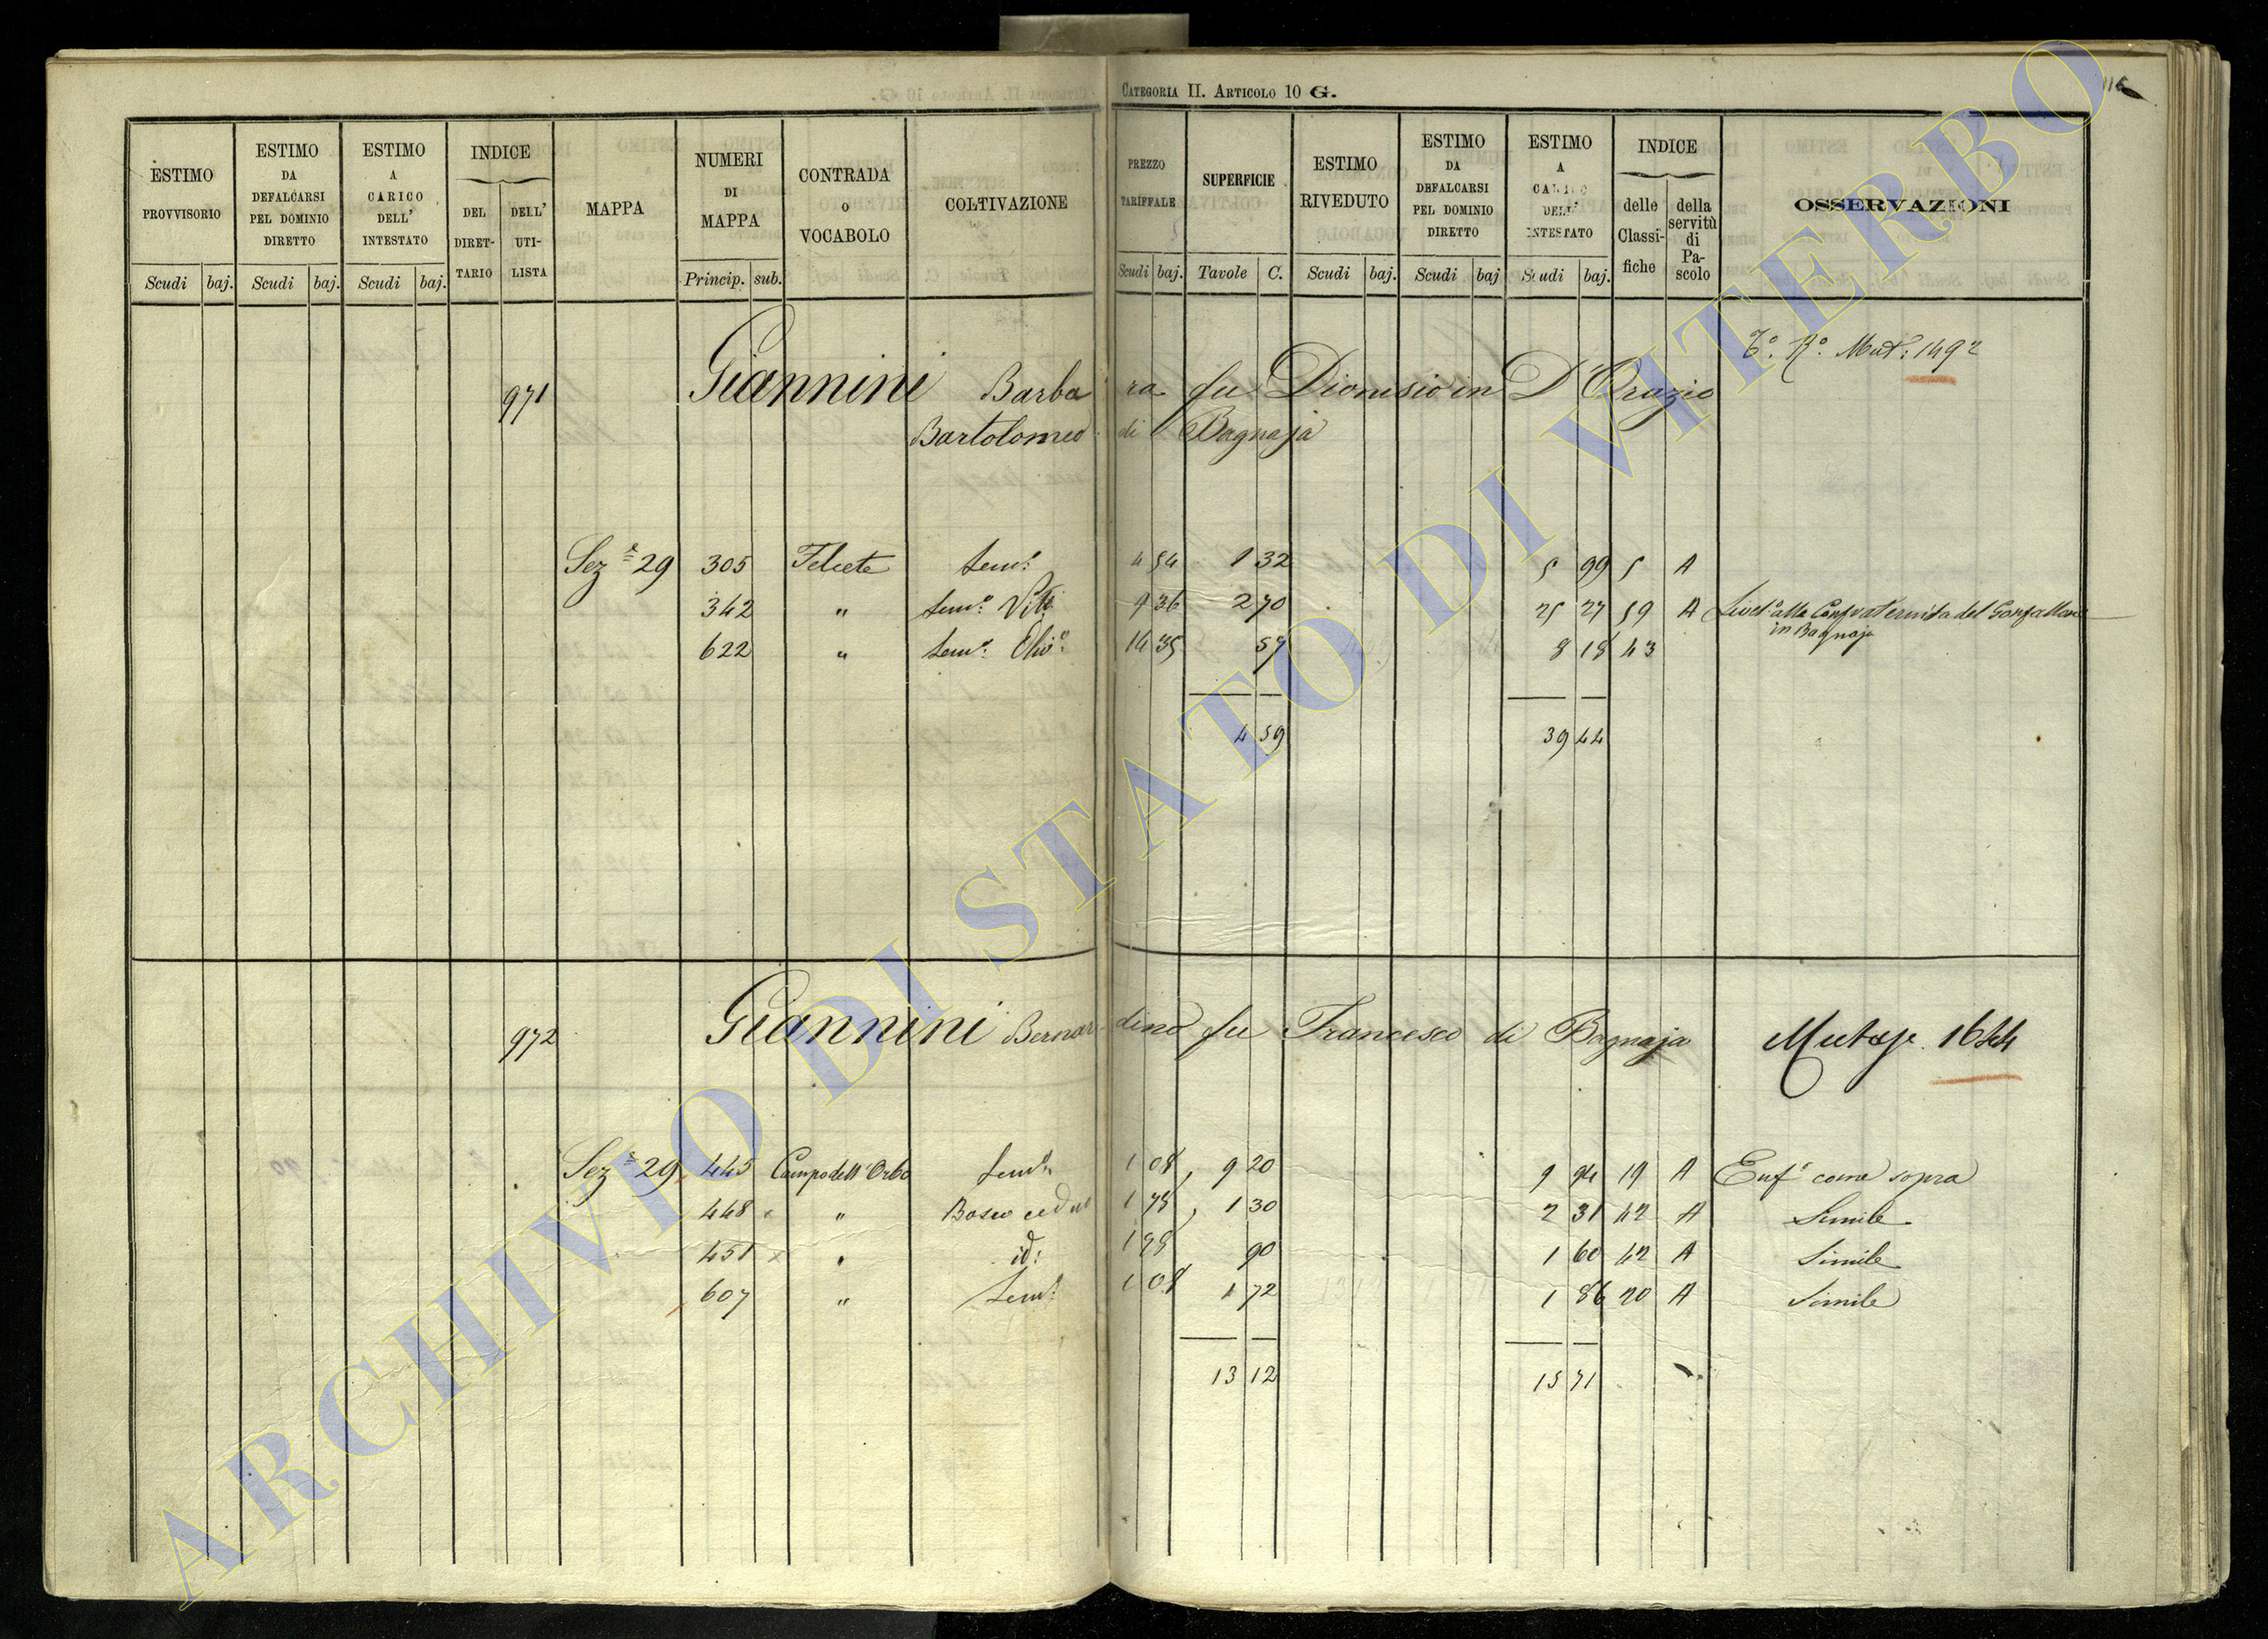 CATEGORIA II. ARTICOLO 10 G.
ESTIMO PROVVISORIO
ESTIMO DA DEFALCARSI PEL DOMINIO DIRETTO
ESTIMO A CARICO DELL' INTESTATO
INDICE
DEL DIRETTARIO
DELL' UTILISTA
MAPPA
NUMERI DI MAPPA
CONTRADA O VOCABOLO
COLTIVAZIONE
PREZZO TARIFFALE
SUPERFICIE
ESTIMO RIVEDUTO
ESTIMO DA DEFALCARSI PEL DOMINIO DIRETTO
ESTIMO A CARICO DELL' INTESTATO
INDICE
delle Classifiche
della servitù di Pascolo
OSSERVAZIONI
Scudi baj. Scudi baj. Scudi baj. Princip. sub. Scudi baj. Tavole C. Scudi baj. Scudi baj Scudi baj.
Mut: 1492
971 Giannini Barbara fu Dionisio in D'Orazio
Bartolomeo di Bagnaja
Sez.e 29 305 Felcete Sem.o 4 54 1 32 5 99 5 A
342 " Sem.o Vit.o 9 36 2 70 25 27 59 A Livel.o alla Confraternita del Gonfallone
in Bagnaja
622 " Sem.o Oliv.o 14 35 57 8 18 43
4 59 39 44
972 Giannini Bernardino fu Francesco di Bagnaja Mutaz. 1644
Sez.e 29 445 Campo dell'Orbo Sem.o 1 08 9 20 9 94 19 A Enf.a come sopra
448 " Bosco ceduo 1 78 1 30 2 31 42 A Simile
451 " id: 1 78 90 1 60 42 A Simile
607 " Sem.o 1 08 1 72 1 86 20 A Simile
13 12 15 71
ARCHIVIO DI STATO DI VITERBO